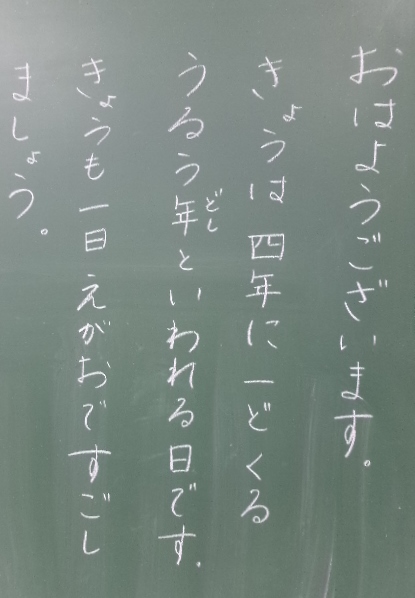 おはようございます。
きょうは四年に一どくる
うるう年どしといわれる日です。
きょうも一日えがおですごし
ましょう。